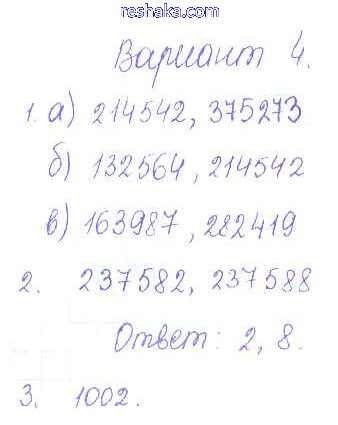 www.reshaka.com
Вариант 4.
1. а) 214542, 375273
б) 132564, 214542
в) 163987, 282419
2. 237582, 237588
Ответ: 2, 8.
3. 1002.